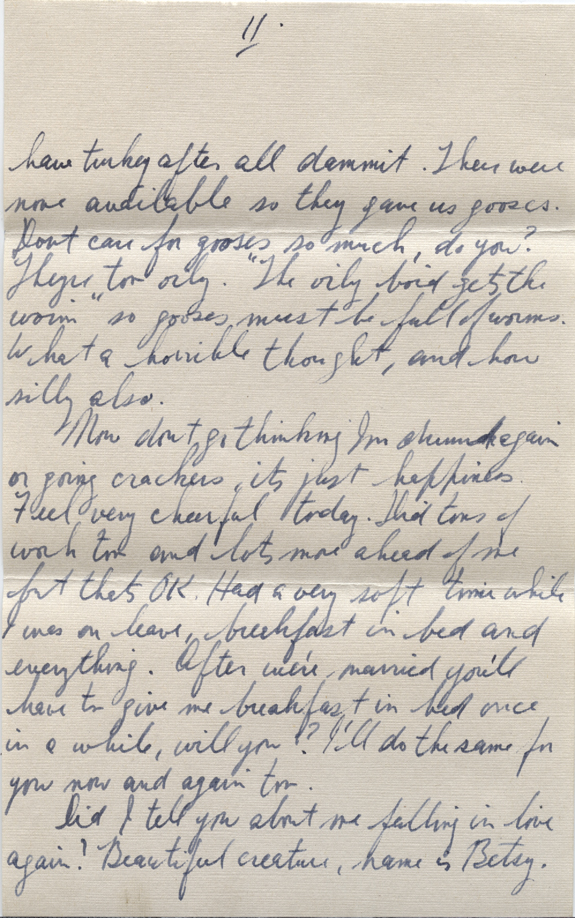 11.
have turkey after all dammit. There were
none available so they gave us gooses.
Dont care for gooses so much, do you?
Theyre too oily. "The oily boid gets the
worm" so gooses must be full of worms.
What a horrible thought, and how
silly also.
Now dont go thinking Im drunk again
or going crackers, its just happiness.
Feel very cheerful today. Did tons of
work too and lots more ahead of me
but thats OK. Had a very soft time while
I was on leave, breakfast in bed and
everything. After we're married you'll
have to give me breakfast in bed once
in a while, will you? I'll do the same for
you now and again too.
Did I tell you about me falling in love
again? Beautiful creature, name is Betsy.